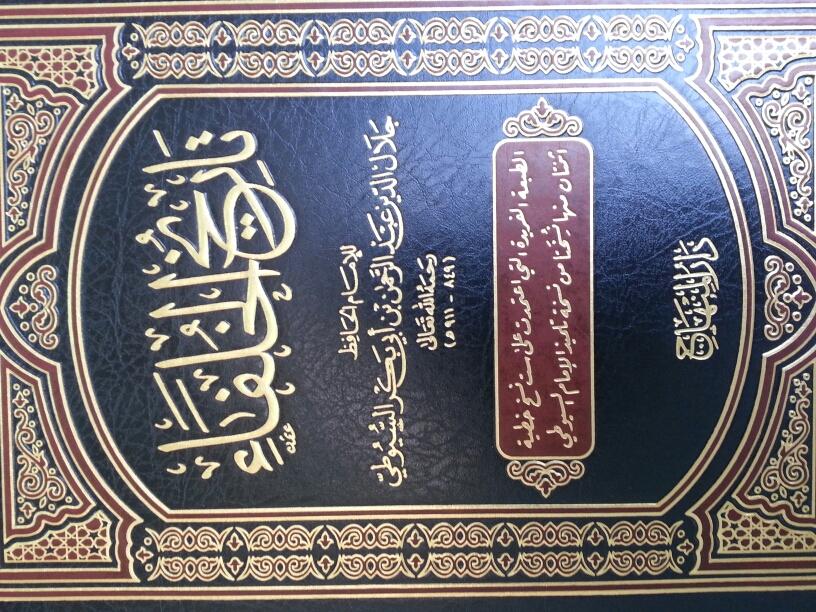 تَارِيخُ الْخُلَفَاءِ
للإمام الحافظ
جلال الدين عبد الرحمن بن أبي بكر السيوطي
رحمه الله تعالى
(٨٤٩ - ٩١١ هـ)
الطبعة الفريدة التي اعتمدت على ست نسخ خطية
اثنتان منها نسختا من نسخة تلميذ الإمام السيوطي
دار المنهاج